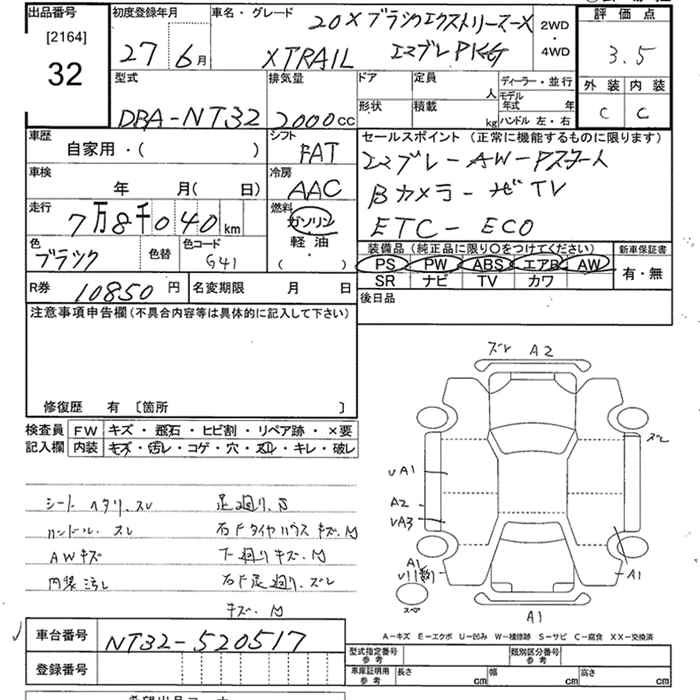 出品番号
[2164]
32
初度登録年月
27 6月
車名・グレード
20X ブラックエクストリーマーX
XTRAIL エマブレPKG
2WD
・
4WD
評価点
3.5
外装 内装
C C
型式
DBA-NT32
排気量
2000cc
ドア
定員
人
形状
積載
kg
ディーラー・並行
モデル年式 年
ハンドル 左・右
車歴
自家用・( )
シフト
FAT
車検
年 月( 日)
冷房
AAC
走行
7万8千040km
燃料
ガソリン
軽油
( ・ )
色
ブラック
色替
色コード
G41
R券 10850円
名変期限 月 日
セールスポイント(正常に機能するものに限ります)
エマブレーAW-Pスタート
Bカメラーナビ TV
ETC-ECO
装備品(純正品に限り○をつけてください)
PS PW ABS エアB AW
SR ナビ TV カワ
新車保証書
有・無
後日品
注意事項申告欄(不具合内容等は具体的に記入して下さい)
修復歴 有 〔箇所 〕
検査員記入欄
FW キズ・飛石・ヒビ割・リペア跡・×要
内装 キズ・汚レ・コゲ・穴・スレ・キレ・破レ
シートヘタリ、スレ
ハンドル スレ
AWキズ
内装汚し
足廻り、サ
右Fタイヤハウス キズ、M
下廻りキズ、M
右F足廻り、ズレ
キズ、M
ズレ A2
ズレ
UA1
A2
UA3
A1
U11(数)
スペア
A1
A1
A-キズ E-エクボ U-凹み W-補修跡 S-サビ C-腐食 XX-交換済
車台番号 NT32-520517
登録番号
型式指定番号 参考
類別区分番号 参考
車庫証明用 参考
長さ cm
幅 cm
高さ cm